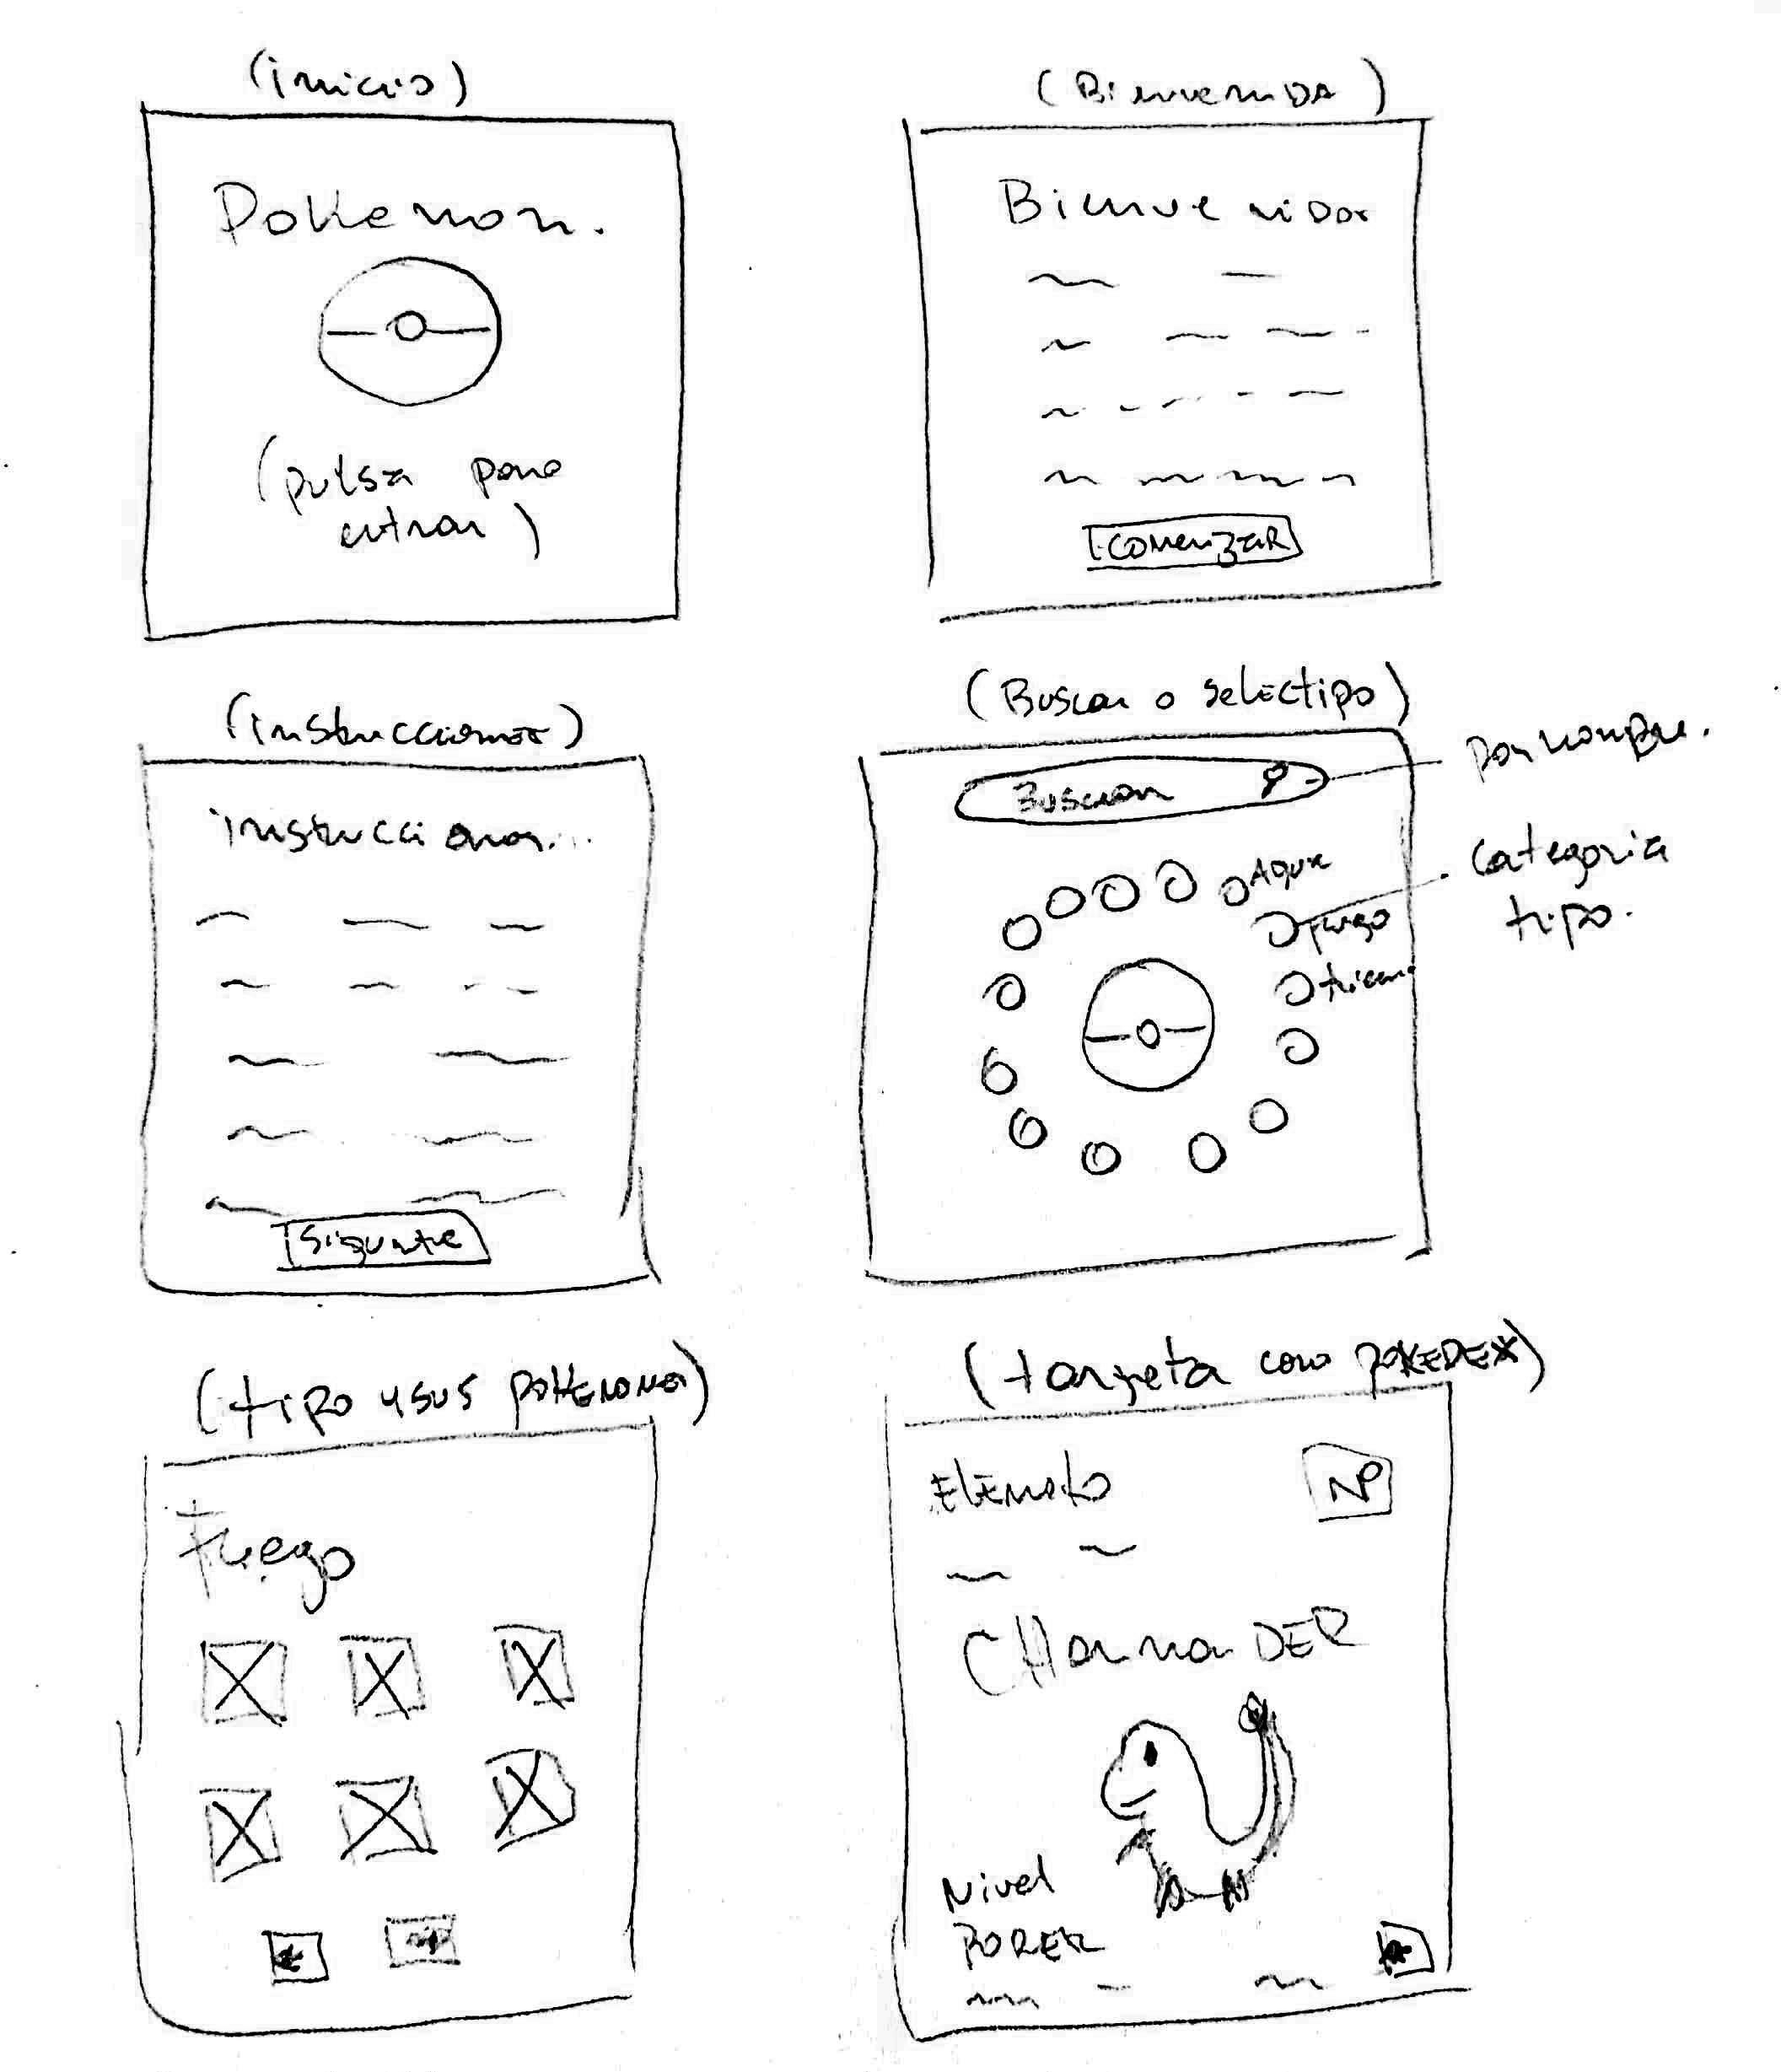 (inicio)
Pokemon.
(pulsa para
entrar)
(BienveniDA)
Bienvenidos
comenzar
(instrucciones)
instrucciones...
Siguente
(Buscar o selectipo)
Buscar
por nombre.
Agua
fuego
categoria
tipo.
(tipo y sus pokemones)
Fuego
(tarjeta con POKEDEX)
Elemeto
Nº
CHarmanDER
Nivel
PODER